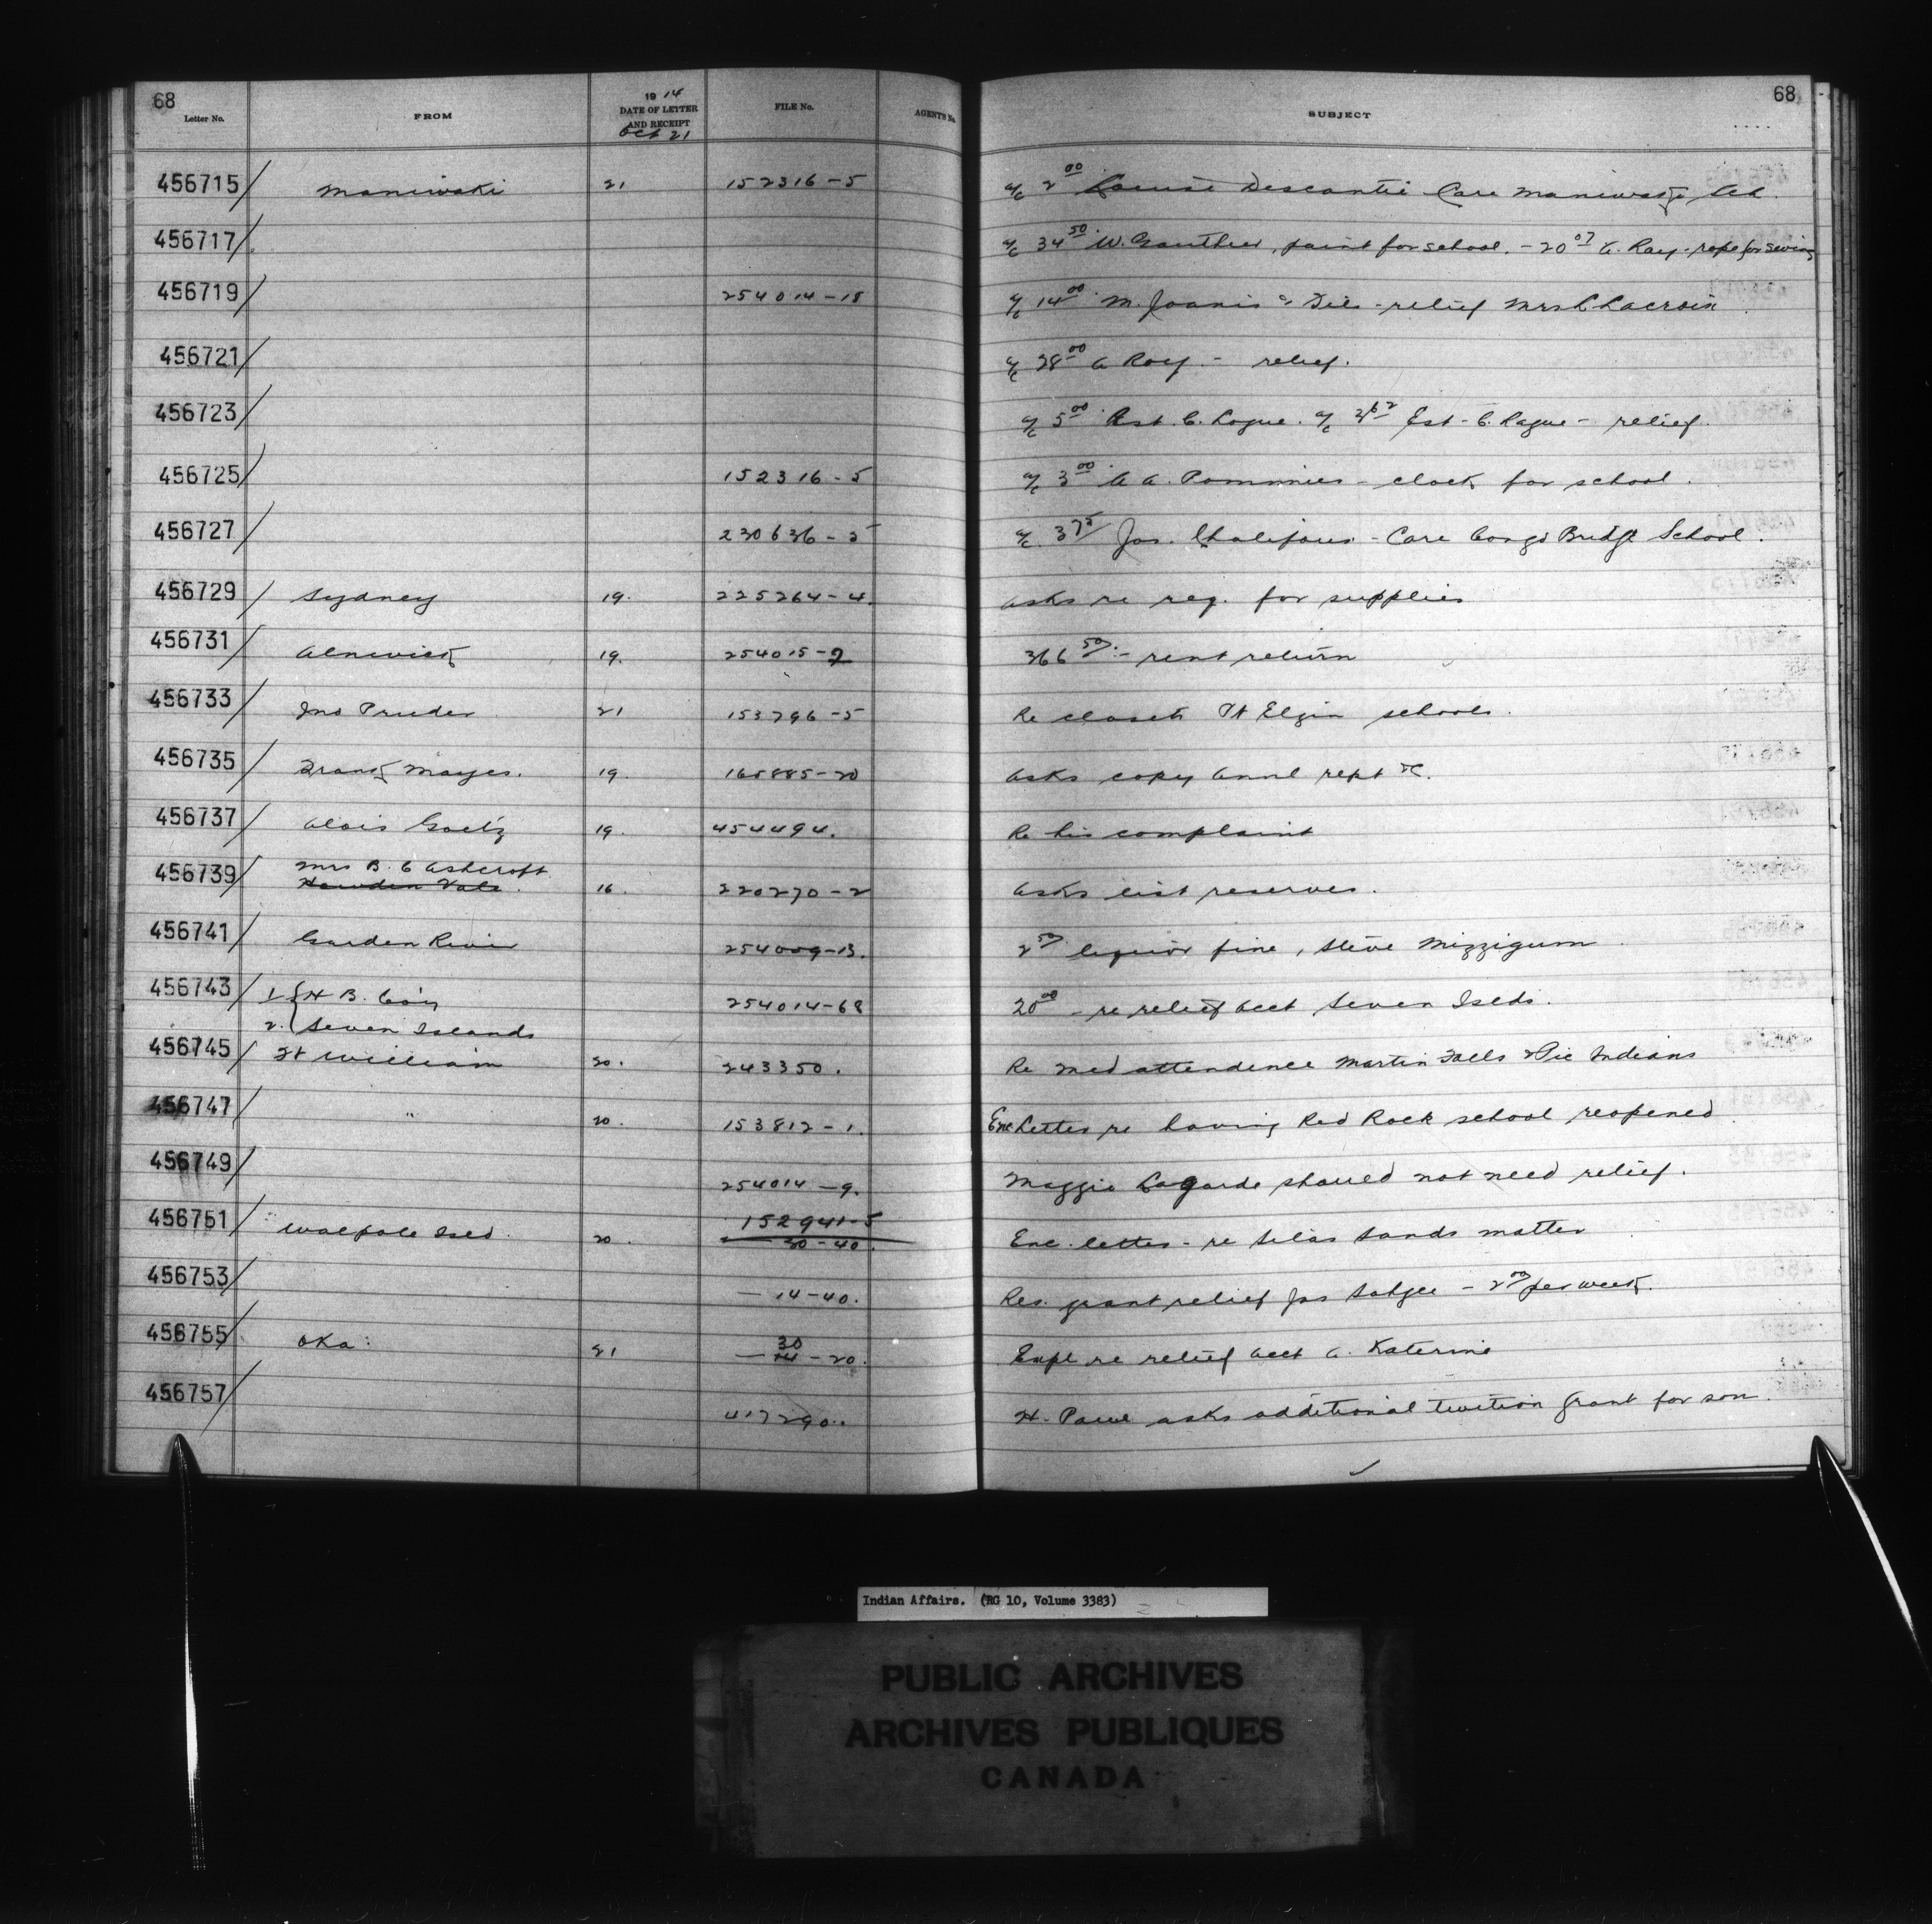 68
Letter No. FROM 1914 DATE OF LETTER AND RECEIPT Oct 21 FILE No. AGENT'S No. SUBJECT 68
456715 Maniwaki 21 152316-5 a/c 2 00 Louise Descontie Care Maniwaki Sch.
456717 a/c 34 50 W. Gauthier, paint for school. - 20 07 A. Roy - rope for swing
456719 254014-18 a/c 14 00 M. Joanis & Fils - relief Mrs L Lacroix
456721 a/c 28 00 A Roy. - relief.
456723 a/c 5 00 Est. C. Logue. a/c Est - C. Logue - relief.
456725 152316-5 a/c 3 00 A. Pommier - clock for school.
456727 230636-5 a/c 3 75 Jos. Chalifoux - Care Congo Bridge School.
456729 Sydney 19. 225264-4. Asks re req. for supplies
456731 Alnwick 19. 254015-2 366 50 - rent return
456733 Jno Pruder 21 153796-5 Re closets Pt Elgin schools.
456735 Frank Mayes. 19. 165885-20 Asks copy annl rept &c.
456737 Alois Goetz 19. 454494. Re his complaint
456739 Mrs B. C Ashcroft
Howden Vale. 16. 220270-2 Asks list reserves.
456741 Garden River 254009-13. 2 50 liquor fine, Steve Mizzigum
456743 1 { H B. Co'y 254014-68 20 00 - re relief acct Seven Islds.
2. { Seven Islands
456745 Ft William 20. 243350. Re Med attendence Martin Falls & Pic Indians
456747 " 20. 153812-1. Enc Letter re having Red Rock school reopened
456749 254014-9. Maggie Lagarde should not need relief.
456751 Walpole Isld. 20. 152941-5
— 30-40. Enc. letter - re Silas Sands matter
456753 — 14-40. Res. grant relief Jas - 2 00 per week.
456755 Oka: 21 — 30
14 - 20. Expl re relief acct A. Katerine
456757 417290.. H. Paul asks additional tuition grant for son.
Indian Affairs. (RG 10, Volume 3383)
PUBLIC ARCHIVES
ARCHIVES PUBLIQUES
CANADA